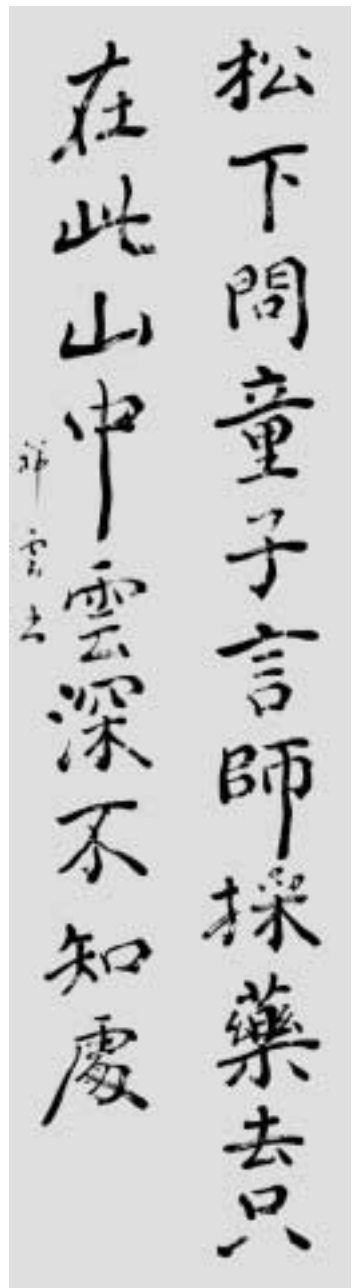 松下問童子言師採藥去只
在此山中雲深不知處
祥雲書